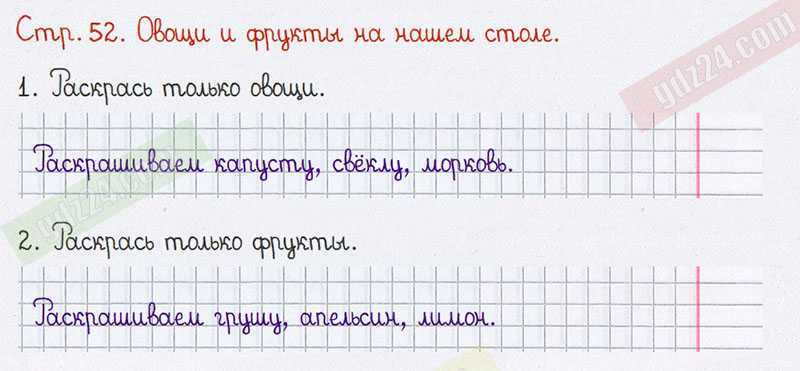 Стр. 52. Овощи и фрукты на нашем столе.
gdz24.com
1. Раскрась только овощи.
Раскрашиваем капусту, свёклу, морковь.
gdz24.com
2. Раскрась только фрукты.
Раскрашиваем грушу, апельсин, лимон.